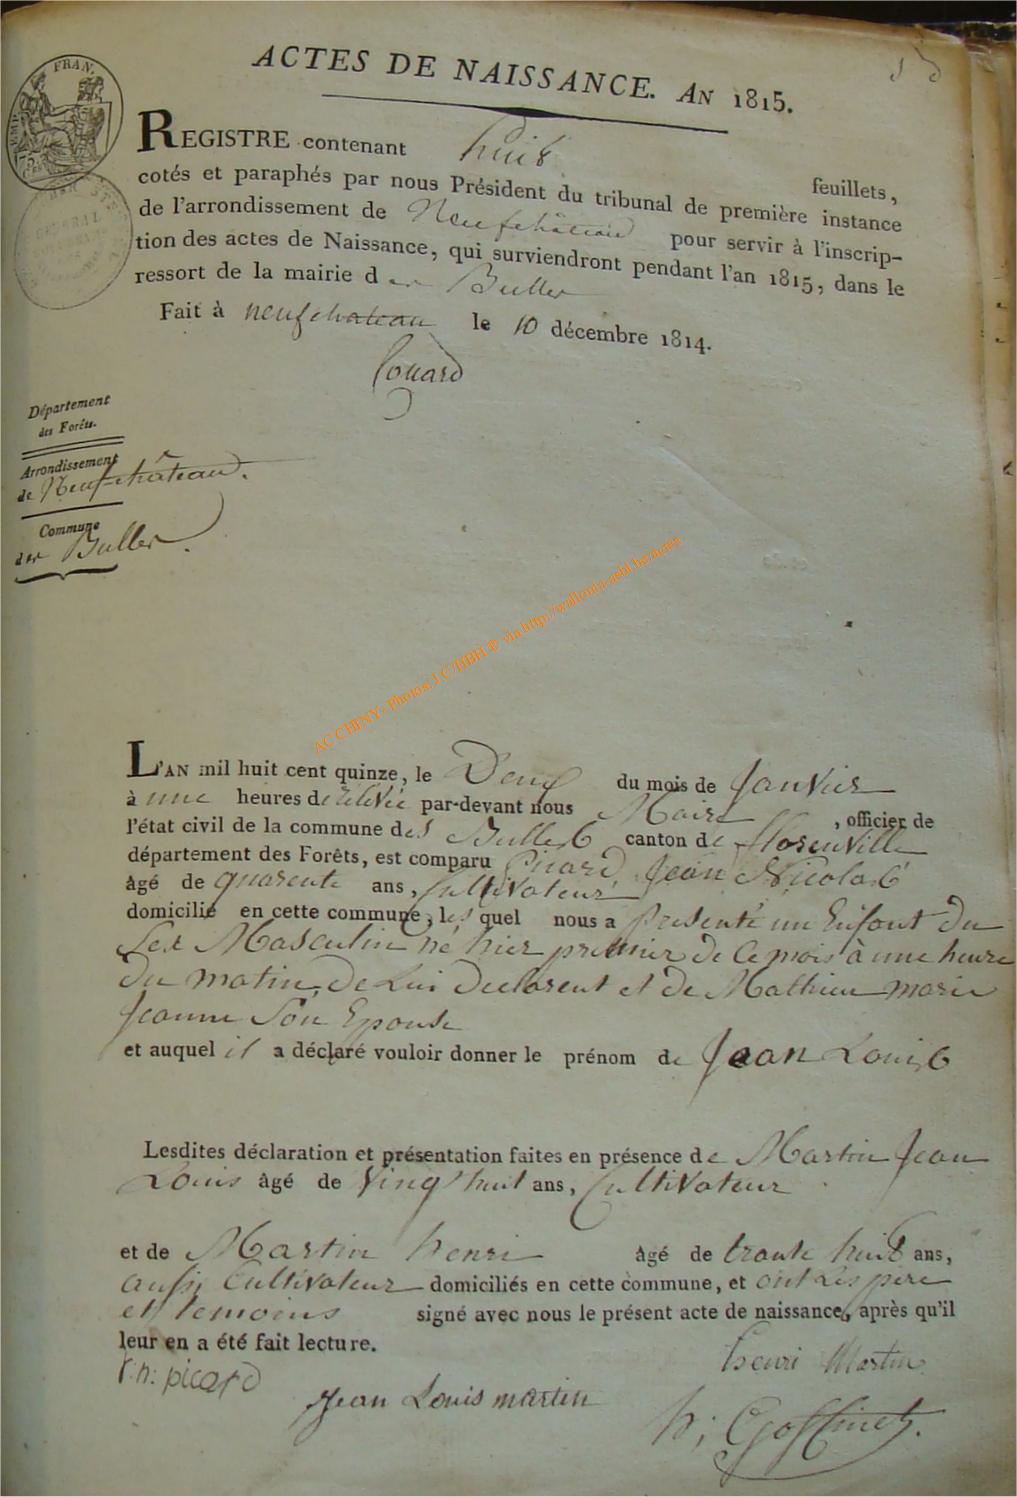 ACTES DE NAISSANCE. AN 1815.
REGISTRE contenant huit feuillets,
cotés et paraphés par nous Président du tribunal de première instance
de l'arrondissement de Neufchâteau pour servir à l'inscrip-
tion des actes de Naissance, qui surviendront pendant l'an 1815, dans le
ressort de la mairie d es Bulles
Fait à neufchateau le 10 décembre 1814.
FRAN.
EMP.
75
Département
des Forêts.
Arrondissement
de Neufchâteau.
Commune
des Bulles.
AC CHINY - Photos J.C. HBH © via http://wallonia-asbl.be
L'AN mil huit cent quinze, le Deux du mois de Janvier
à une heures de relevée par-devant nous Maire, officier de
l'état civil de la commune des Bulles canton de florenville
département des Forêts, est comparu Picard Jean Nicolas
âgé de quarente ans, Cultivateur
domicilié en cette commune, lequel nous a presenté un Enfant Du
Sex Masculin né hier premier de ce mois à une heure
Du matin, De Lui Declarent et de Mathieu marie
Jeanne Son Epouse
et auquel il a déclaré vouloir donner le prénom de Jean Louis
Lesdites déclaration et présentation faites en présence de Martin Jean
Louis âgé de Vingt huit ans, Cultivateur
et de Martin henri âgé de trante huit ans,
aussi Cultivateur domiciliés en cette commune, et ont les pere
et temoins signé avec nous le présent acte de naissance, après qu'il
leur en a été fait lecture.
henri Martin
picard
Jean Louis martin
h; Goffinet.